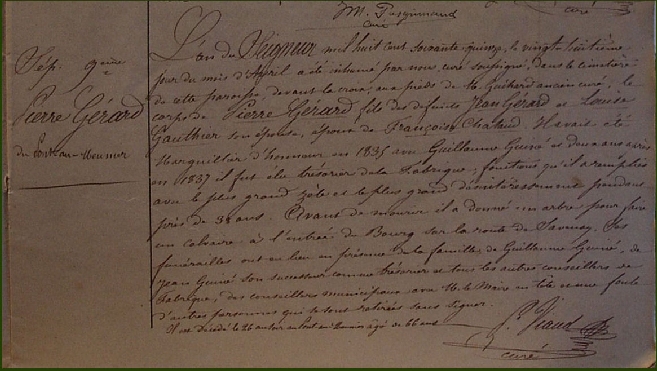 curé
curé
Sép. 9ème
Pierre Gérard
L'an du Seigneur mil huit cent soixante-quinze, le vingt-huitième
jour du mois d'Avril a été inhumé par nous curé soussigné, dans le cimetière
de cette paroisse, devant la croix, aux pieds de M. Guihard ancien curé, le
corps de Pierre Gérard, fils des défunts Jean Gérard et Louise
Gauthier son épouse, époux de Françoise Chataud. Il avait été
Marguillier d'honneur en 1835 avec Guillaume et deux ans après
en 1837 il fut élu trésorier de la Fabrique, fonctions qu'il a remplies
avec le plus grand zèle et le plus grand désintéressement pendant
près de ans. Avant de mourir il a donné un arbre pour faire
un calvaire à l'entrée du Bourg sur la route de Ses
funérailles ont eu lieu en présence de la famille de Guillaume de
Jean son successeur comme trésorier et tous les autres conseillers de
Fabrique, des conseillers municipaux avec M. le Maire en tête et une foule
d'autres personnes qui se sont retirées sans signer.
Il est décédé le 26 âgé de 66 ans
curé